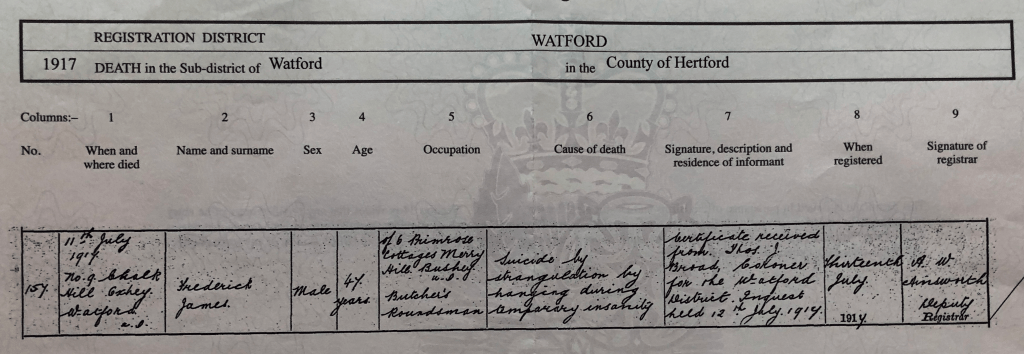 REGISTRATION DISTRICT WATFORD
1917 DEATH in the Sub-district of Watford in the County of Hertford
Columns:– 1 2 3 4 5 6 7 8 9
No. When and where died Name and surname Sex Age Occupation Cause of death Signature, description and residence of informant When registered Signature of registrar
157.
11th July
1917.
No. 9 Chalk
Hill Oxhey.
Watford
u.d.
Frederick
James.
Male
47.
years.
of 6 Primrose
Cottages Merry
Hill. Bushey
u.d.
Butcher's
Roundsman
Suicide by
strangulation by
hanging during
temporary insanity
Certificate received
from Thos. J.
Broad, Coroner
for the Watford
District. Inquest
held 12th July. 1917.
Thirteenth
July.
1917.
A. W.
Ainsworth
Deputy
Registrar